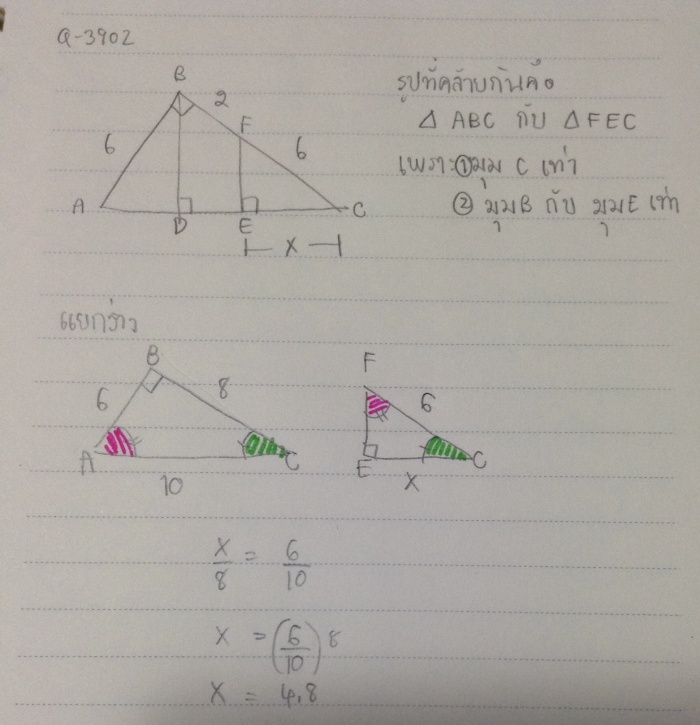 Q-3902
B
2
F
6
6
A
D
E
C
x
รูปที่คล้ายกันคือ
△ ABC กับ △ FEC
เพราะ ① มุม C เท่า
② มุม B กับ มุม E เท่า
แยกร่าง
B
6
8
A
C
10
F
6
E
C
x
x/8 = 6/10
x = (6/10) 8
x = 4.8